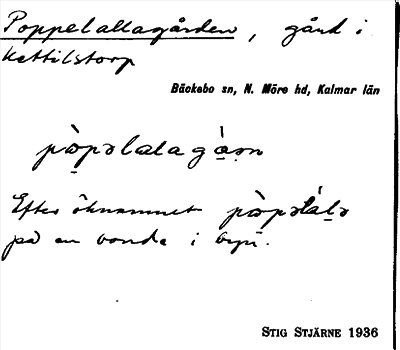 Poppelallagården, gård i
Kettilstorp
Bäckebo sn, N. Möre hd, Kalmar län
pɔ̀pəlalagɑ̀ṣn
Efter öknamnet pɔ̀pəlálə
på en bonde i byn.
STIG STJÄRNE 1936